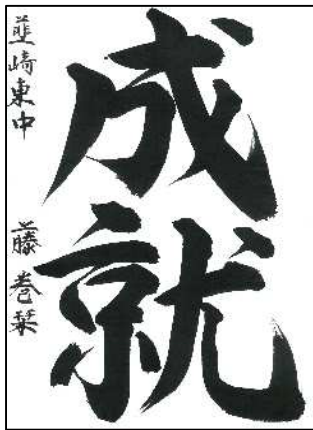 成就
韮崎東中 藤巻栞